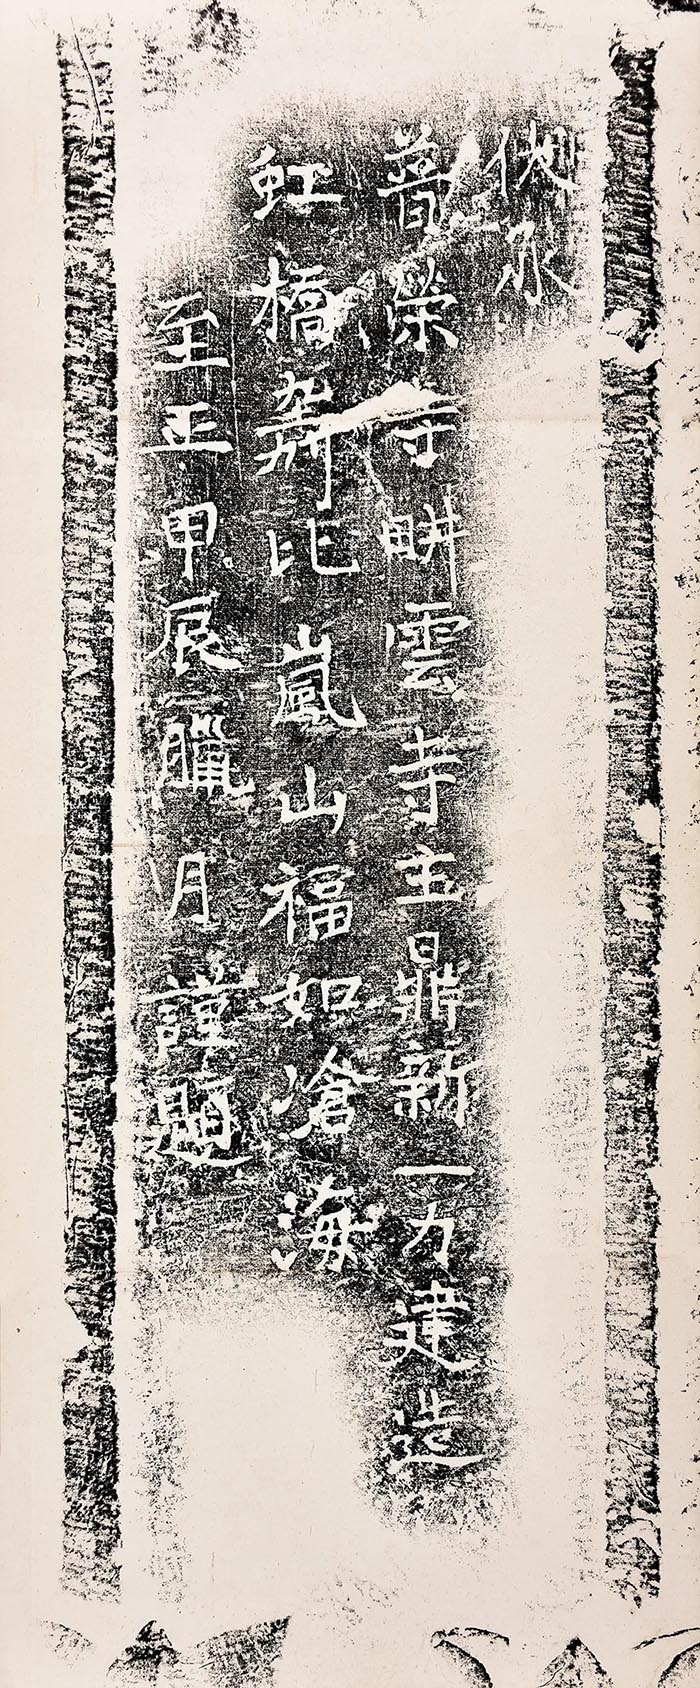 伏承
普榮寺畊雲寺主鼎新一力建造
虹橋壽比嵐山福如滄海
至正甲辰臘月謹題